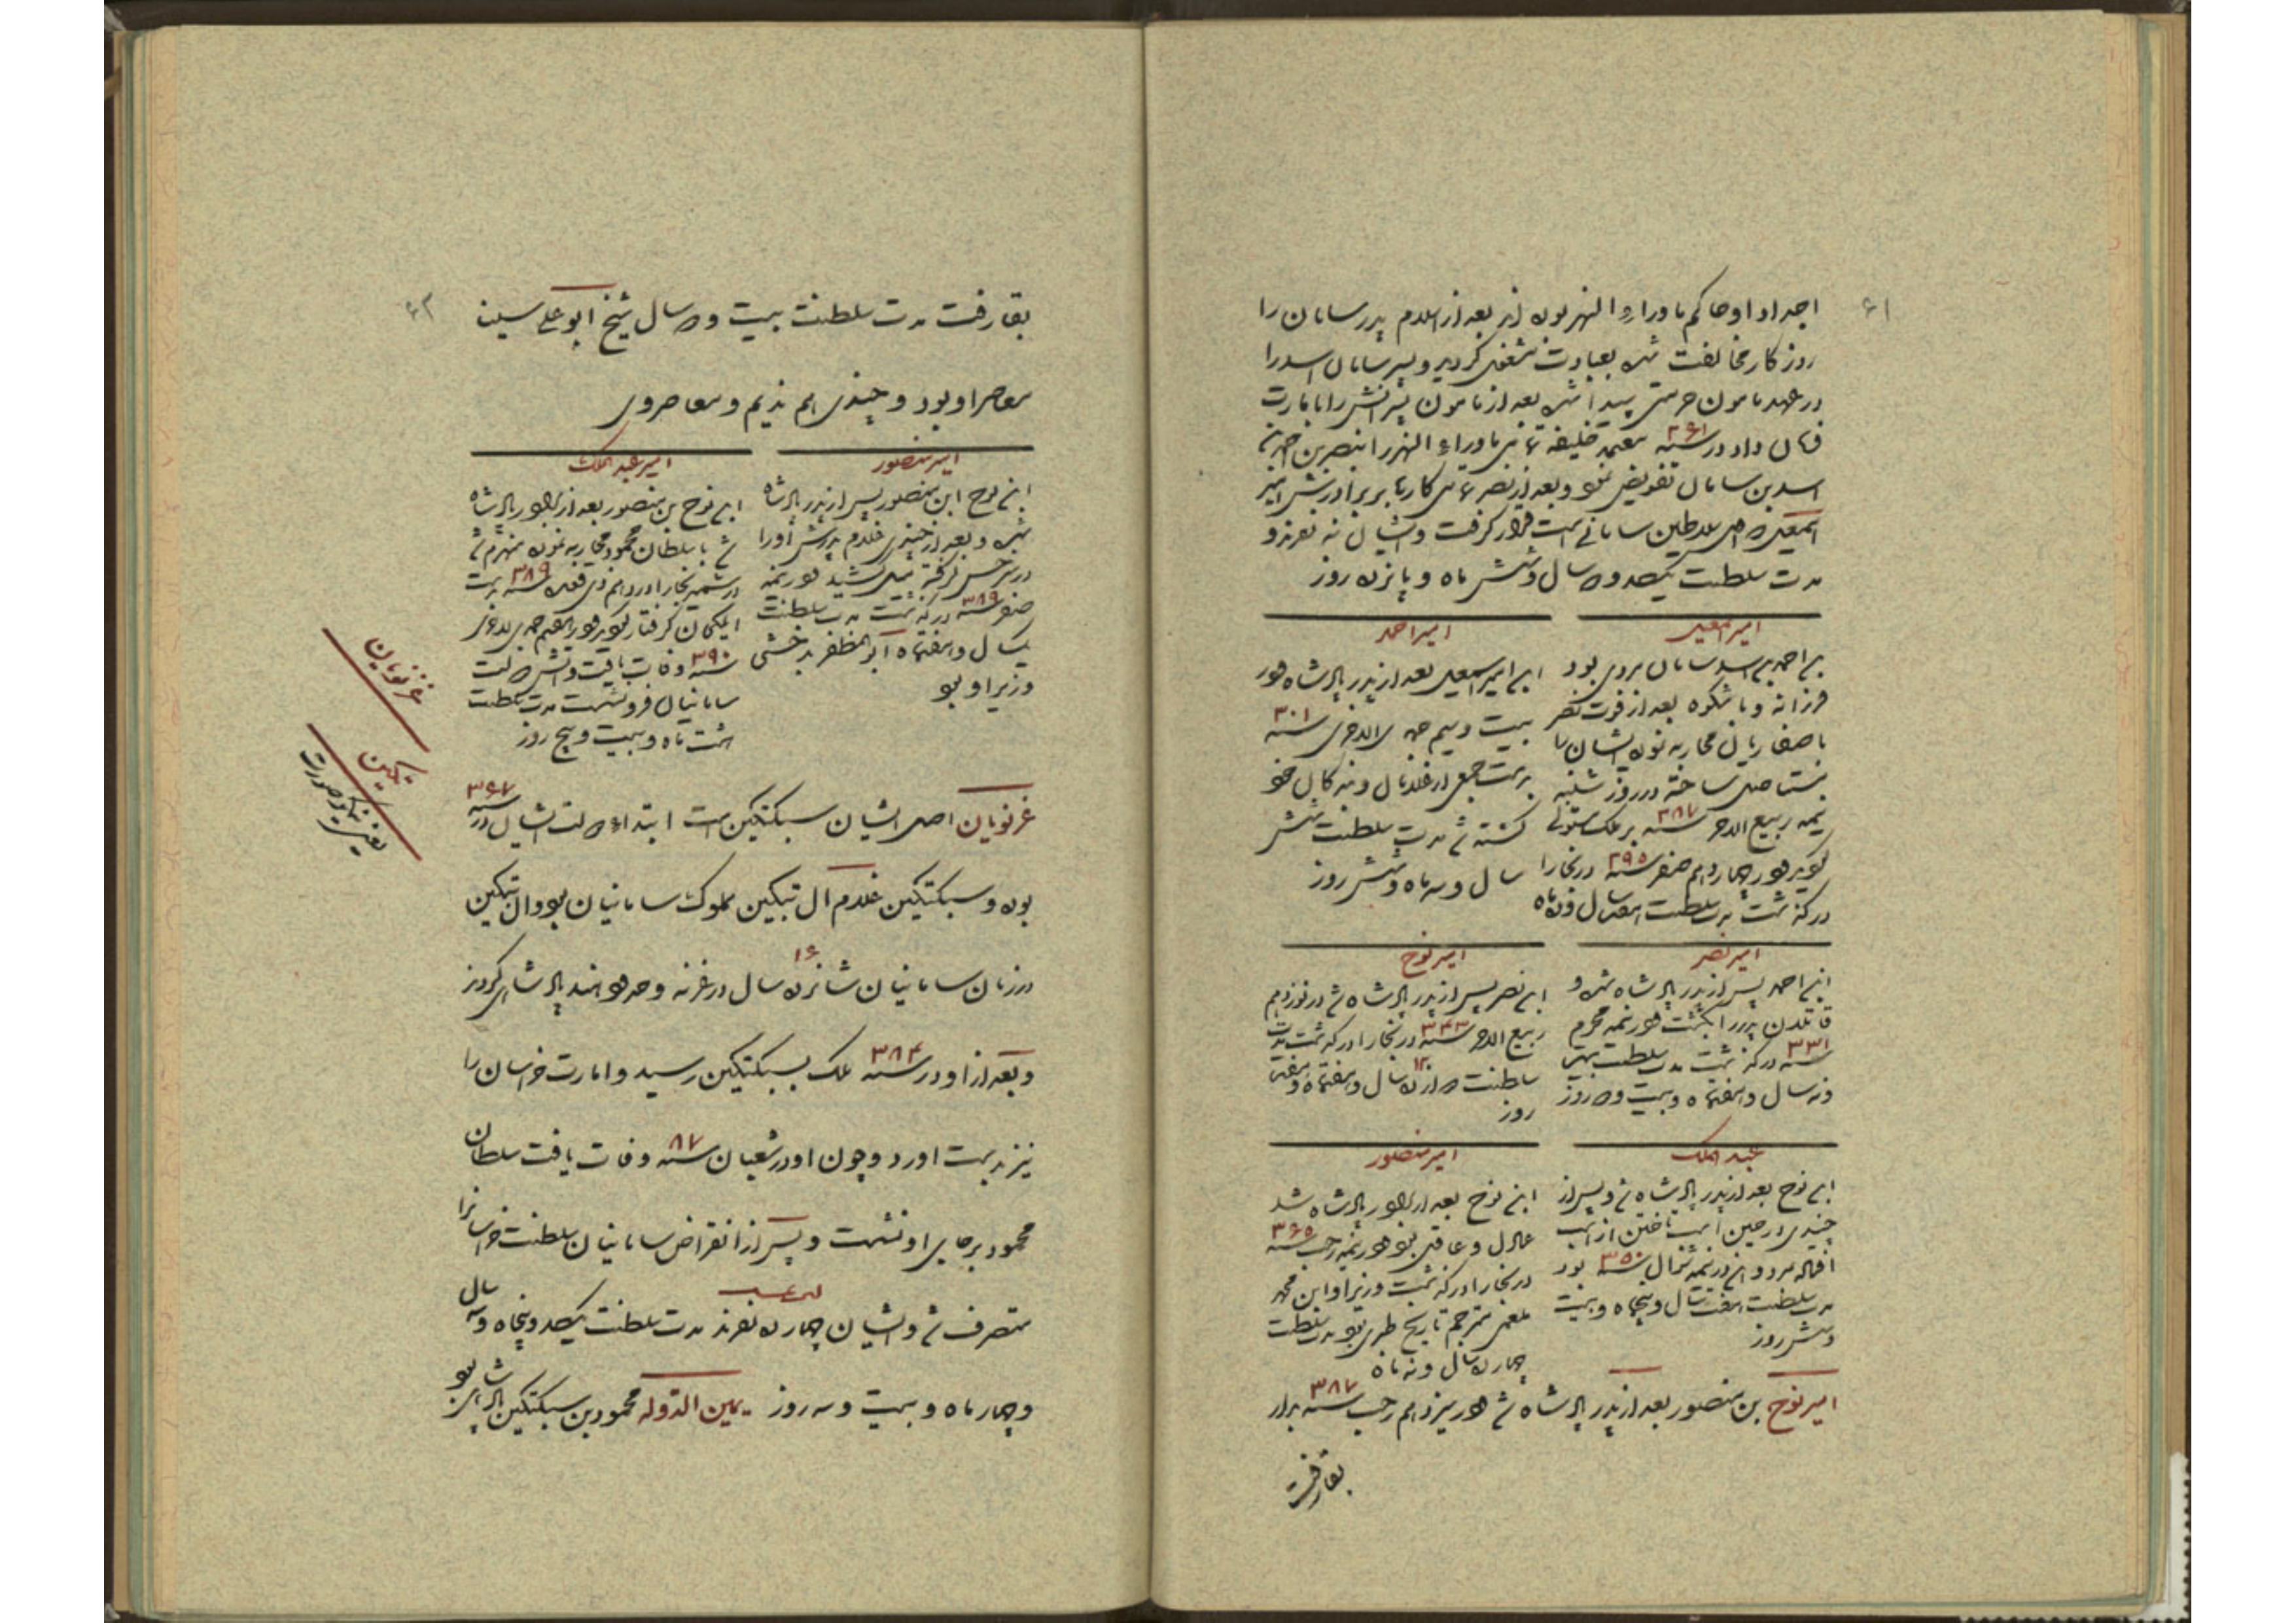 ۶۱
اجداد او حاکم ماوراء النهر بوده اند بعد از اسلام پدر سامان را
روزگار مخالفت شده بعبادت مشغول گردید و پسر سامان اسد را
در عهد مامون حرمتی پیدا شده بعد از مامون پسرانش را بامارت
داد در سنه ۲۶۱ معتمد خلیفه عباسی ماوراء النهر را بنصر بن احمد بن
اسد بن سامان تفویض نمود و بعد از نصر کارها بر برادرش امیر
اسمعیل که اصل سلاطین سامانی است قرار گرفت و ایشان نه نفرند و
مدت سلطنت یکصد و دو سال و شش ماه و پانزده روز
امیر اسمعیل
بن احمد بن اسد سامان مردی بود
فرزانه و باشکوه بعد از فوت نصر
با صفاریان محاربه نموده ایشان را
مستاصل ساخته در روز شنبه
نیمه ربیع الاخر سنه ۲۸۷ بر ملک مستولی
گردید در چهاردهم صفر سنه ۲۹۵ در بخارا
درگذشت مدت سلطنت هفت سال و ده ماه
امیر احمد
ابن امیر اسمعیل بعد از پدر پادشاه شد در
بیست و سیم جمادی الاخری سنه ۳۰۱
بدست جمعی از غلامان و بندگان خود
کشته شد مدت سلطنت شش
سال و سه ماه و شش روز
امیر نصر
ابن احمد پس از پدر پادشاه شد و
قاتلان پدر را بکشت در نیمه محرم
سنه ۳۳۱ درگذشت مدت سلطنت بیست
و نه سال و هفتماه و بیست و دو روز
امیر نوح
ابن نصر پس از پدر پادشاه شد در نوزدهم
ربیع الاخر سنه ۳۴۳ در بخارا درگذشت مدت
سلطنت دوازده ۱۲ سال و هفتماه و هفت
روز
عبد الملک
ابن نوح بعد از پدر پادشاه شد و پس از
چندی در حین اسب تاختن از اسب
افتاده مرد و آن در نیمه شوال سنه ۳۵۰ بود
مدت سلطنت هفت سال و پنجاه و بیست
و شش روز
امیر منصور
ابن نوح بعد از برادر پادشاه شد
عادل و عاقل بود در نیمه رجب سنه ۳۶۵
در بخارا درگذشت وزیر او ابن محمد
بلعمی مترجم تاریخ طبری بود مدت سلطنت
چهارده سال و نه ماه
امیر نوح بن منصور بعد از پدر پادشاه شد در سیزدهم رجب سنه ۳۸۷ بدار
بقا رفت
بقا رفت مدت سلطنت بیست و دو سال شیخ ابو علی سینا
معاصر او بود و چندی هم ندیم و معاصر وی
امیر منصور
ابن نوح ابن منصور پس از پدر پادشاه
شد و بعد از چندی غلام پدرش او را
در سرخس گرفته میل کشید در نیمه
صفر سنه ۳۸۹ درگذشت مدت سلطنت
یکسال و هفتماه ابو المظفر بدخشی
وزیر او بود
امیر عبد الملک
ابن نوح بن منصور بعد از برادر پادشاه
شد با سلطان محمود محاربه نموده منهزم شد
در بخارا در دهم ذی قعده سنه ۳۸۹ بدست
ایلکخان گرفتار گردید
سنه ۳۹۰ وفات یافت و آتش دولت
سامانیان فرو نشست مدت سلطنت
هشت ماه و بیست و پنج روز
غزنویان اصل ایشان سبکتکین است ابتداء دولت ایشان در سنه ۳۶۷
بوده و سبکتکین غلام آل تبکین مملوک سامانیان بود و ال تبکین
در زمان سامانیان شانزده ۱۶ سال در غزنه و حدود هند پادشاهی کردند
و بعد از او در سنه ۳۸۴ ملک بسبکتکین رسید و امارت خراسان را
نیز بدست اورد و چون او در شعبان سنه ۸۷ وفات یافت سلطان
محمود بر جای او نشست و پس از انقراض سامانیان سلطنت خراسانرا
متصرف شد و ایشان چهارده نفرند مدت سلطنت یکصد و پنجاه و سه سال
و چهار ماه و بیست و سه روز یمین الدوله محمود بن سبکتکین پادشاهی بود
غزنویان
تکین